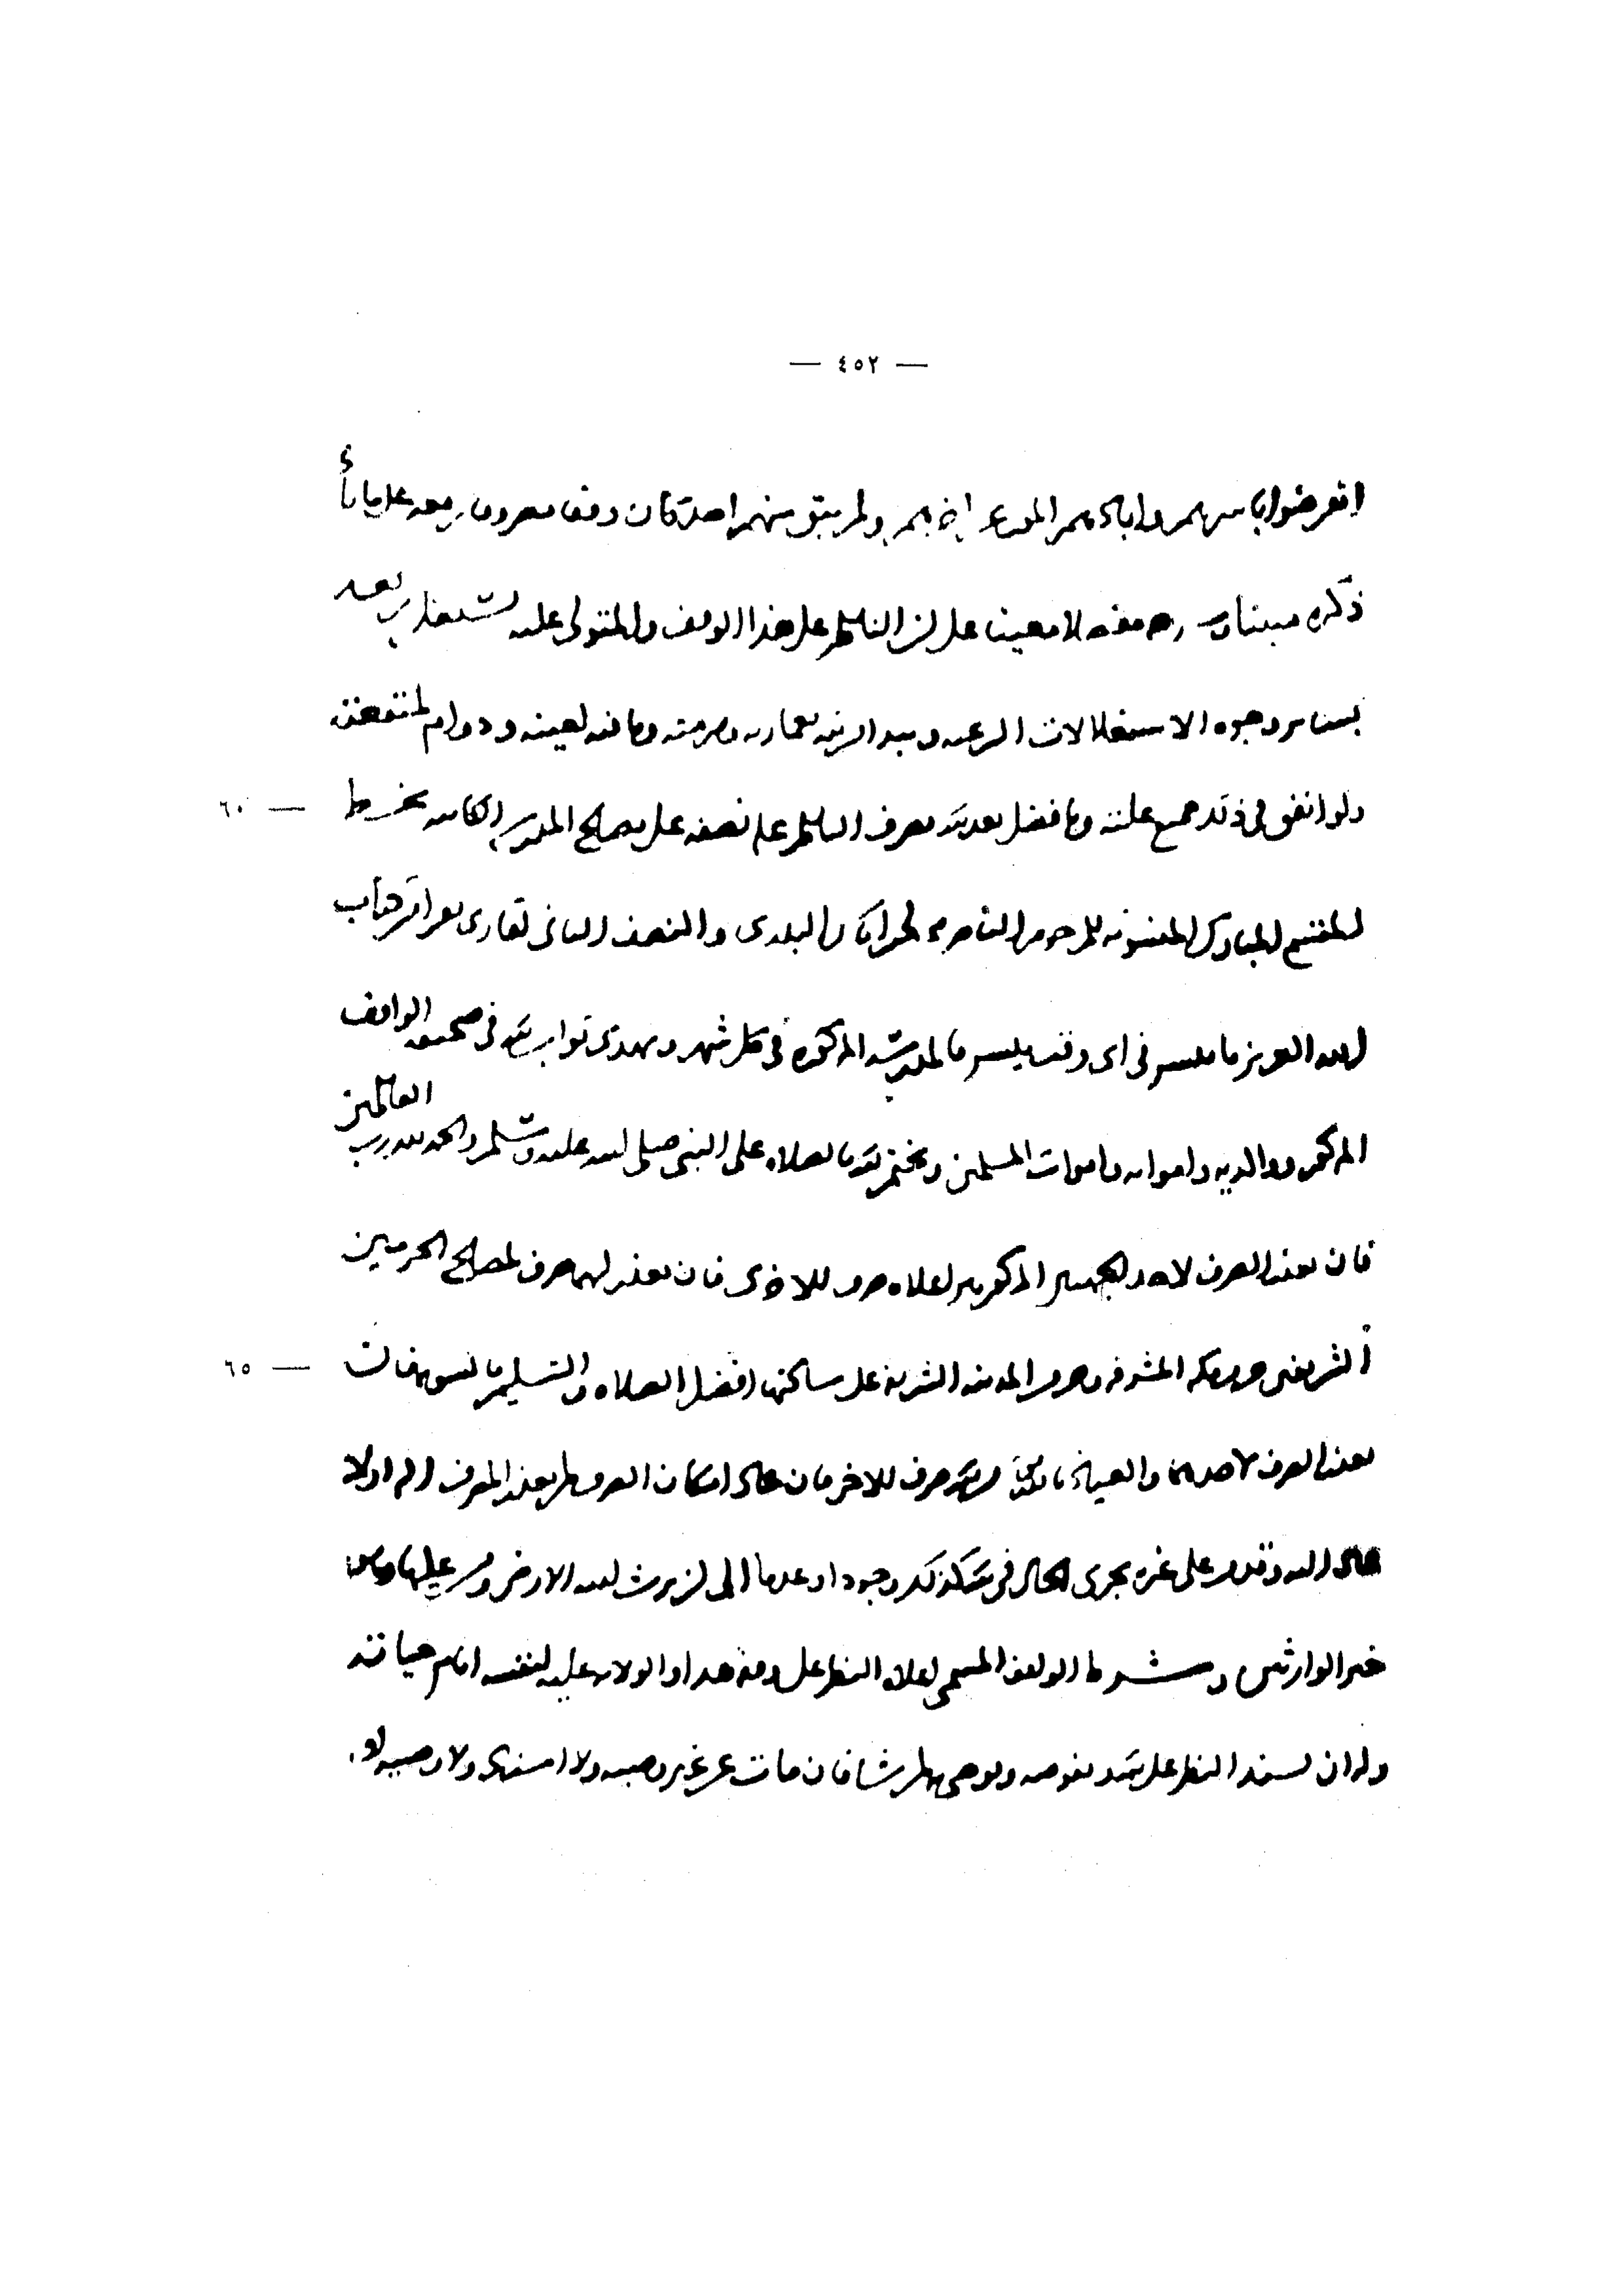 — ٤٥٢ —
انقرضوا باسرهم واباد‌هم الموت عن اخرهم ولم يبق منهم احد كان وقفا مصروفا ريعه على ما يأتي
ذكره مبينا مفصلا معينا على ان الناظر على هذا الوقف والمتولى عليه يستغله بعد
بسائر وجوه الاستغلالات الشرعيه ويبدا من ريعه بعمارته ومرمته وما فيه بقا لعينه ودوام لمنفعته
ولو انفق فى ذلك جميع غلته وما فضل بعد ذلك يصرف الناظر عليه نصفه على مصالح المدرسه الكاينه بخط — ٦٠
المبارك المرحوم الناصرى والنصف الثانى لقارى يقرا من كتاب
الله العزيز ما تيسر فى اى وقت تيسر بالمدرسه المذكوره فى كل شهر ويهدى ثواب ذلك فى صحيفه الواقف
المذكور ووالديه وامواته واموات المسلمين ويختم ذلك بالصلاه على النبى صلى الله عليه وسلم والحمد لله رب العالمين
فان تعذر الصرف لاحد الجهتين المذكورتين اعلاه صرف للاخرى فان تعذر لهما صرف لمصالح الحرمين
الشريفين حرم مكه المشرفه وحرم المدينه الشريفه على ساكنها افضل الصلاه والتسليم بالسويه فان — ٦٥
تعذر الصرف لاحدهما والعياذ بالله من ذلك صرف للاخر فان عاد امكان الصرف لما تعذر الصرف اليه اولا
عاد اليه وقدم على غيره يجرى الحال فى ذلك كذلك وجودا وعدما الى ان يرث الله الارض ومن عليها وهو
خير الوارثين وشرط الواقف المسمى اعلاه النظر على وقفه هذا والولايه عليه لنفسه ايام حياته
وله ان يسند النظر على ذلك ويفوضه ويوصى به لمن شا فان مات عن غير وصيه ولا اسناد ولا وصيه او